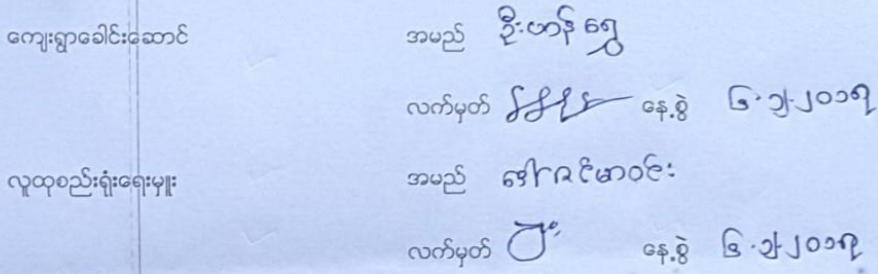 ကျေးရွာခေါင်းဆောင် အမည် ဦးဟန်ရွှေ
လက်မှတ် နေ့စွဲ ၆.၁၂.၂၀၁၇
လူထုစည်းရုံးရေးမှူး အမည် ဒေါ်ဇင်မာဝင်း
လက်မှတ် နေ့စွဲ ၆.၁၂.၂၀၁၇